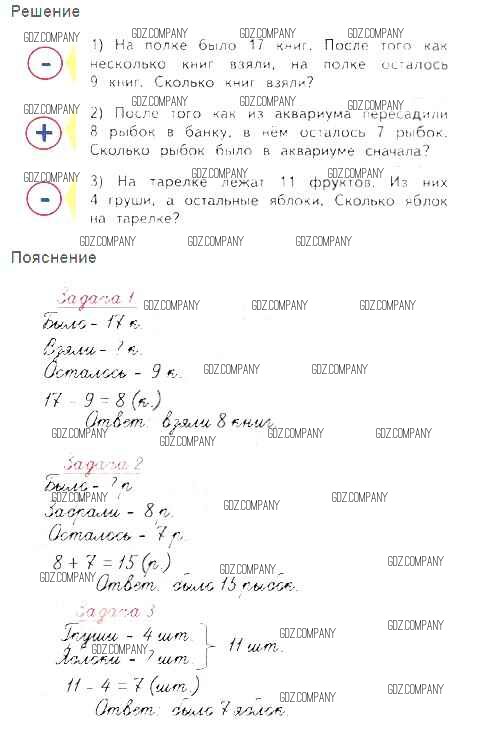 Решение
GDZ.COMPANY GDZ.COMPANY GDZ.COMPANY GDZ.COMPANY
-
1) На полке было 17 книг. После того как
несколько книг взяли, на полке осталось
9 книг. Сколько книг взяли?
GDZ.COMPANY GDZ.COMPANY GDZ.COMPANY GDZ.COMPANY
+
2) После того как из аквариума пересадили
8 рыбок в банку, в нём осталось 7 рыбок.
Сколько рыбок было в аквариуме сначала?
GDZ.COMPANY GDZ.COMPANY GDZ.COMPANY GDZ.COMPANY
-
3) На тарелке лежат 11 фруктов. Из них
4 груши, а остальные яблоки. Сколько яблок
на тарелке?
GDZ.COMPANY GDZ.COMPANY GDZ.COMPANY
Пояснение
Задача 1 GDZ.COMPANY GDZ.COMPANY GDZ.COMPANY
Было - 17 к.
Взяли - ? к.
Осталось - 9 к. GDZ.COMPANY GDZ.COMPANY
17 - 9 = 8 (к.)
Ответ: взяли 8 книг.
GDZ.COMPANY GDZ.COMPANY GDZ.COMPANY GDZ.COMPANY
Задача 2
Было - ? р.
GDZ.COMPANY
Забрали - 8 р. GDZ.COMPANY GDZ.COMPANY
Осталось - 7 р.
8 + 7 = 15 (р.) GDZ.COMPANY GDZ.COMPANY
GDZ.COMPANY
Ответ: было 15 рыбок.
Задача 3
GDZ.COMPANY GDZ.COMPANY
Груши - 4 шт.
Яблоки - ? шт. 11 шт.
GDZ.COMPANY
11 - 4 = 7 (шт.) GDZ.COMPANY GDZ.COMPANY
Ответ: было 7 яблок.